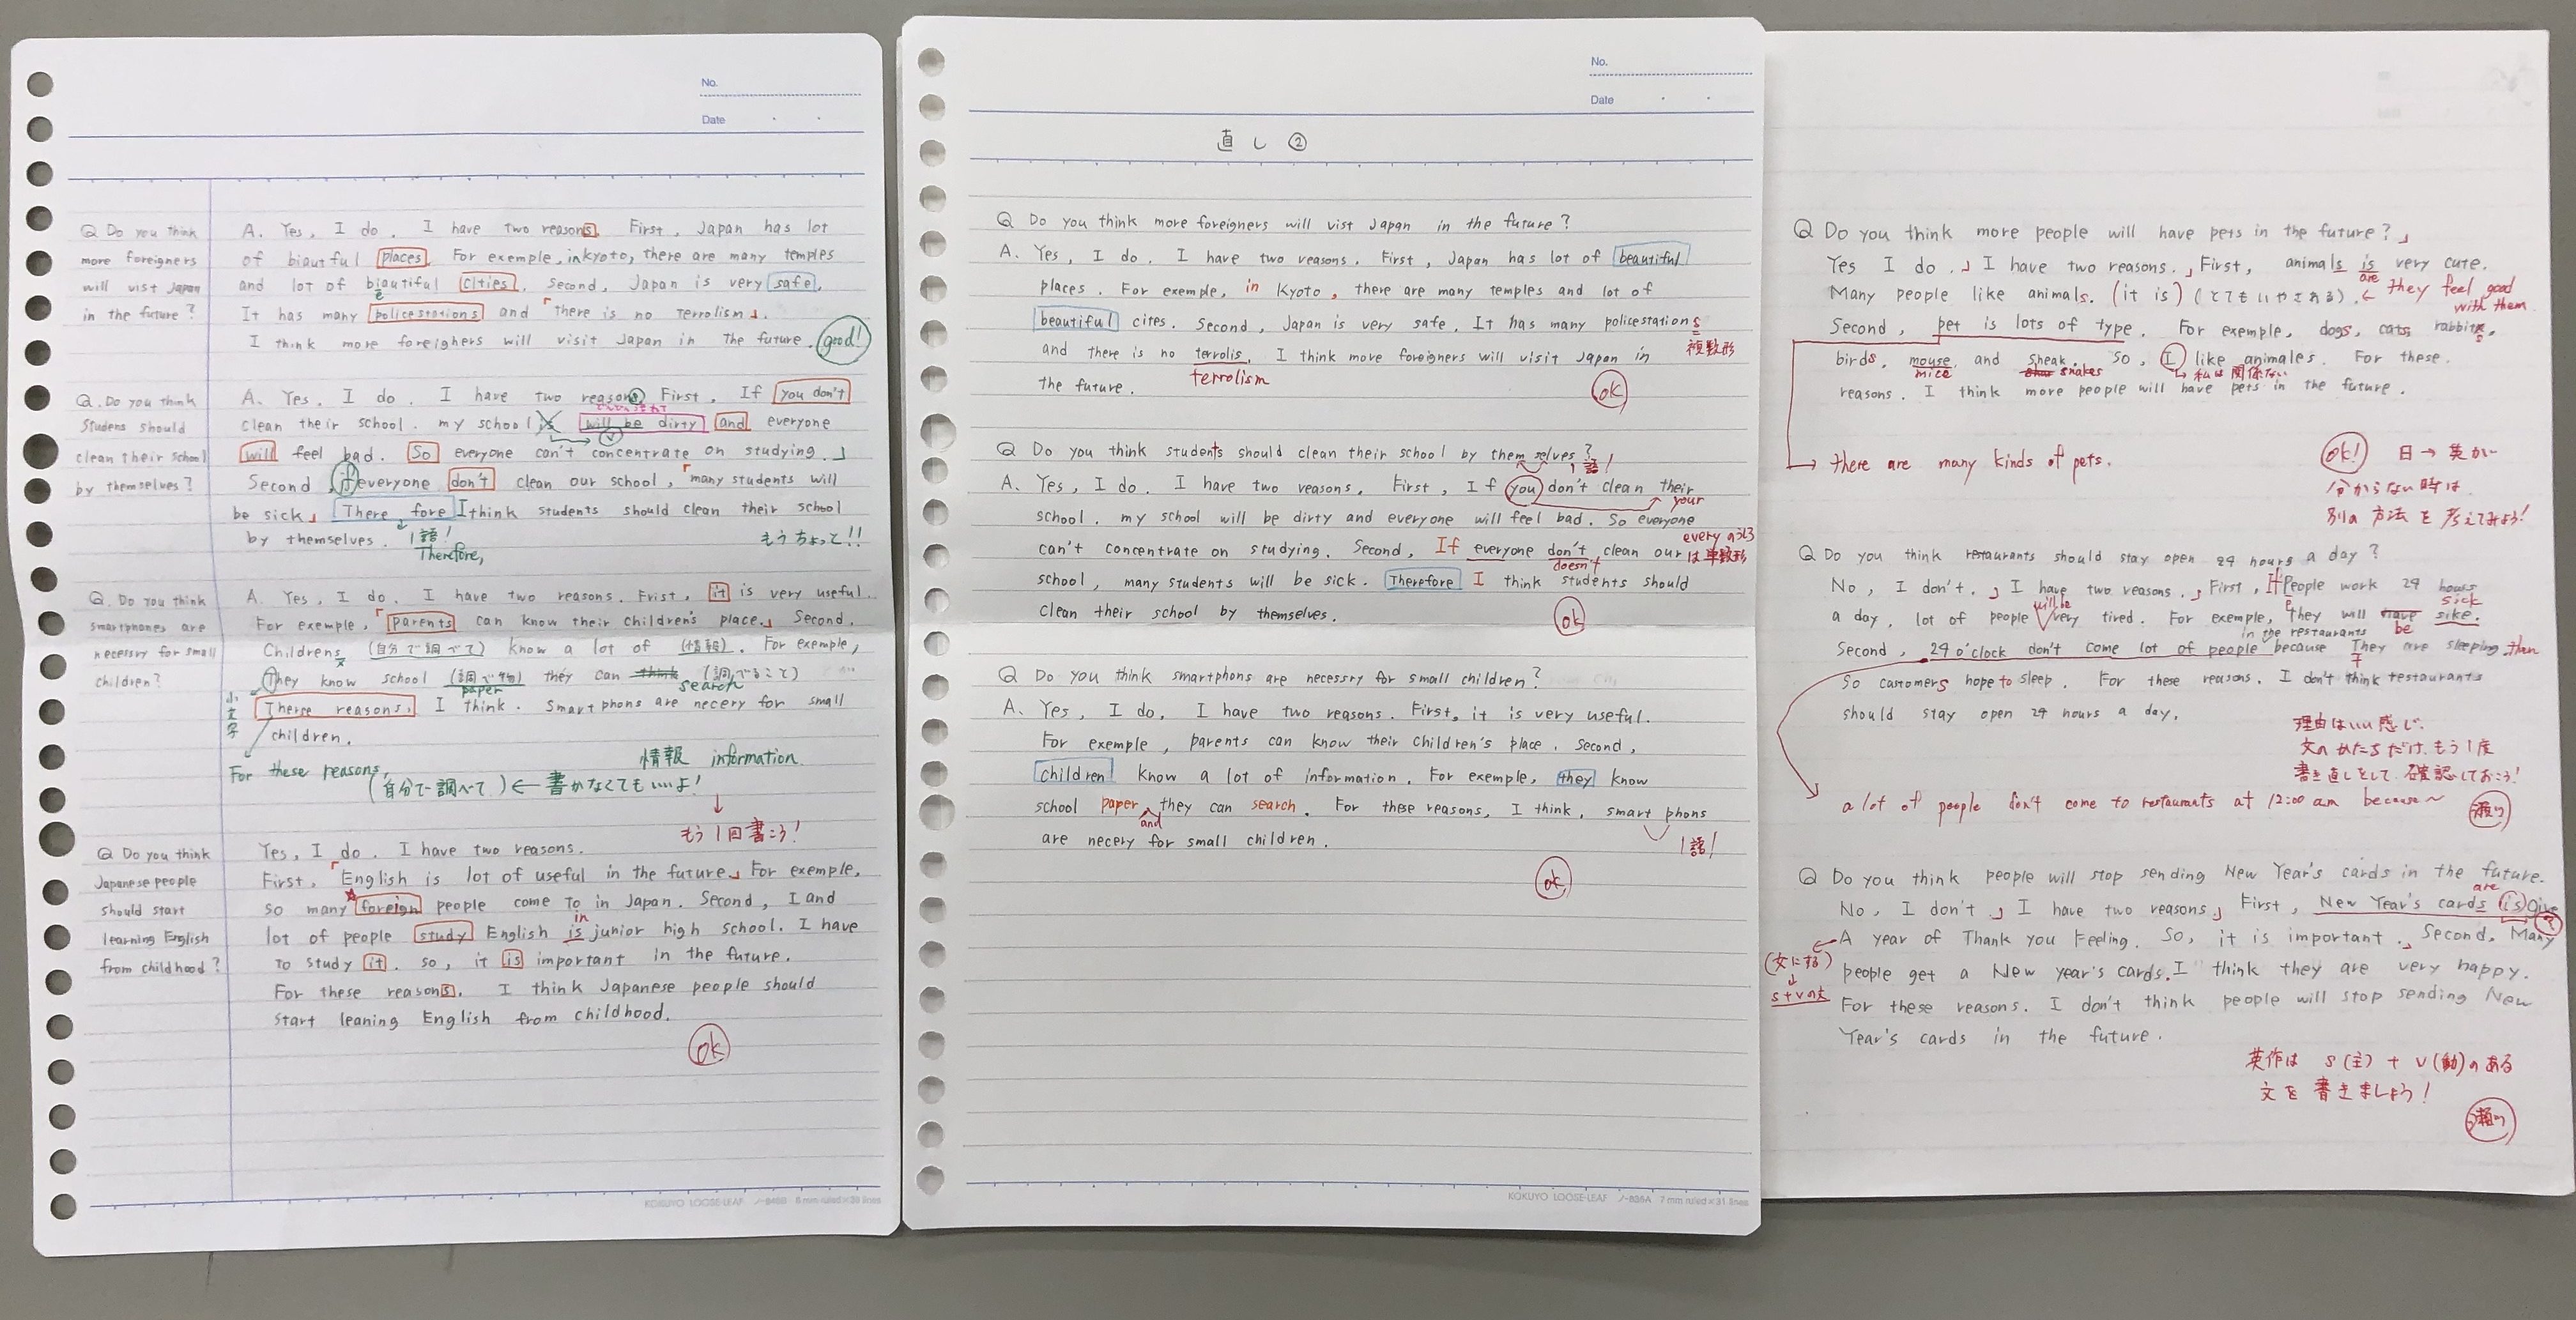 No.
Date
Q Do you think
more foreigners
will vist Japan
in the future?
A. Yes, I do. I have two reasons. First, Japan has lot
of biautful places. For exemple, in kyoto, there are many temples
and lot of biautiful cities. Second, Japan is very safe.
e
It has many policestations and 「there is no terrolism」.
I think more foreighers will visit Japan in the future. good!
Q. Do you think
Studens should
clean their school
by themselves?
A. Yes, I do. I have two reasons First, If you don't
clean their school. my school is will be dirty and everyone
will feel bad. So everyone can't concentrate on studying.」
Second, if everyone don't clean our school, 「many students will
be sick」 There fore I think students should clean their school
by themselves. 1語! もうちょっと!!
Therefore,
Q. Do you think
smartphones are
necessry for small
children?
A. Yes, I do. I have two reasons. Frist, it is very useful.
For exemple, 「parents can know their children's place.」 Second,
Childrens (自分で調べて) know a lot of (情報). For exemple,
They know school (調べ物) they can think (調べること)
paper search
小文字
These reasons, I think. Smart phons are necery for small
children.
For these reasons,
情報 information.
(自分で調べて) ← 書かなくてもいいよ!
↓
もう1回書こう!
Q Do you think
Japanese people
should start
learning English
from childhood?
Yes, I do. I have two reasons.
First, 「English is lot of useful in the future」 For exemple,
So many foreign people come to in Japan. Second, I and
in
lot of people study English is junior high school. I have
to study it. so, it is important in the future.
For these reasons. I think Japanese people should
start leaning English from childhood.
ok
KOKUYO LOOSE-LEAF 6 mm ruled×36 lines
No.
Date
直し②
Q Do you think more foreigners will vist Japan in the future?
A. Yes, I do. I have two reasons. First, Japan has lot of beautiful
places. For exemple, in Kyoto, there are many temples and lot of
beautiful cites. Second, Japan is very safe. It has many policestations
複数形
and there is no terrolis. I think more foreigners will visit Japan in
terrolism
the future. ok
Q Do you think students should clean their school by them selves?
1語!
A. Yes, I do. I have two reasons. First, If you don't clean their
your
school. my school will be dirty and everyone will feel bad. So everyone
can't concentrate on studying. Second, If everyone don't clean our
doesn't
school, many students will be sick. Therefore I think students should
clean their school by themselves. ok
Q Do you think smartphons are necessry for small children?
A. Yes, I do. I have two reasons. First, it is very useful.
For exemple, parents can know their children's place. Second,
children know a lot of information. For exemple, they know
school paper they can search. For these reasons, I think. smart phons
and
are necery for small children. 1語!
ok
KOKUYO LOOSE-LEAF ノ-836A 7 mm ruled×31 lines
Q Do you think more people will have pets in the future?」
Yes I do.」 I have two reasons.」 First, animals is very cute.
are
Many people like animals. (it is) (とてもいやされる). ← they feel good
with them.
Second, pet is lots of type. For exemple, dogs, cats, rabbits,
birds, mouse and sneak. So, I like animales. For these.
mice snakes → 私は関係ない
reasons. I think more people will have pets in the future.
→ there are many kinds of pets.
ok! 日→英が
分からない時は
別の方法を考えてみよう!
Q Do you think restaurants should stay open 24 hours a day?
No, I don't.」 I have two reasons.」 First, If People work 24 hours
will be sick
a day, lot of people very tired. For exemple, they will have sike.
in the restaurants be
Second, 24 o'clock don't come lot of people because They are sleeping than
So customers hope to sleep. For these reasons. I don't think restaurants
should stay open 24 hours a day.
理由はいい感じ.
文のかたちだけ、もう1度
書き直しをして確認しておこう!
a lot of people don't come to restaurants at 12:00 am because〜
Q Do you think people will stop sending New Year's cards in the future.
are
No, I don't.」 I have two reasons」 First, New Year's cards is Give
?
A year of Thank you Feeling. So, it is important.」 Second, Many
(文にする)
↓
S+Vの文
people get a New year's cards. I think they are very happy.
For these reasons. I don't think people will stop sending New
Year's cards in the future.
英作は S(主) + V(動)のある
文を書きましょう!